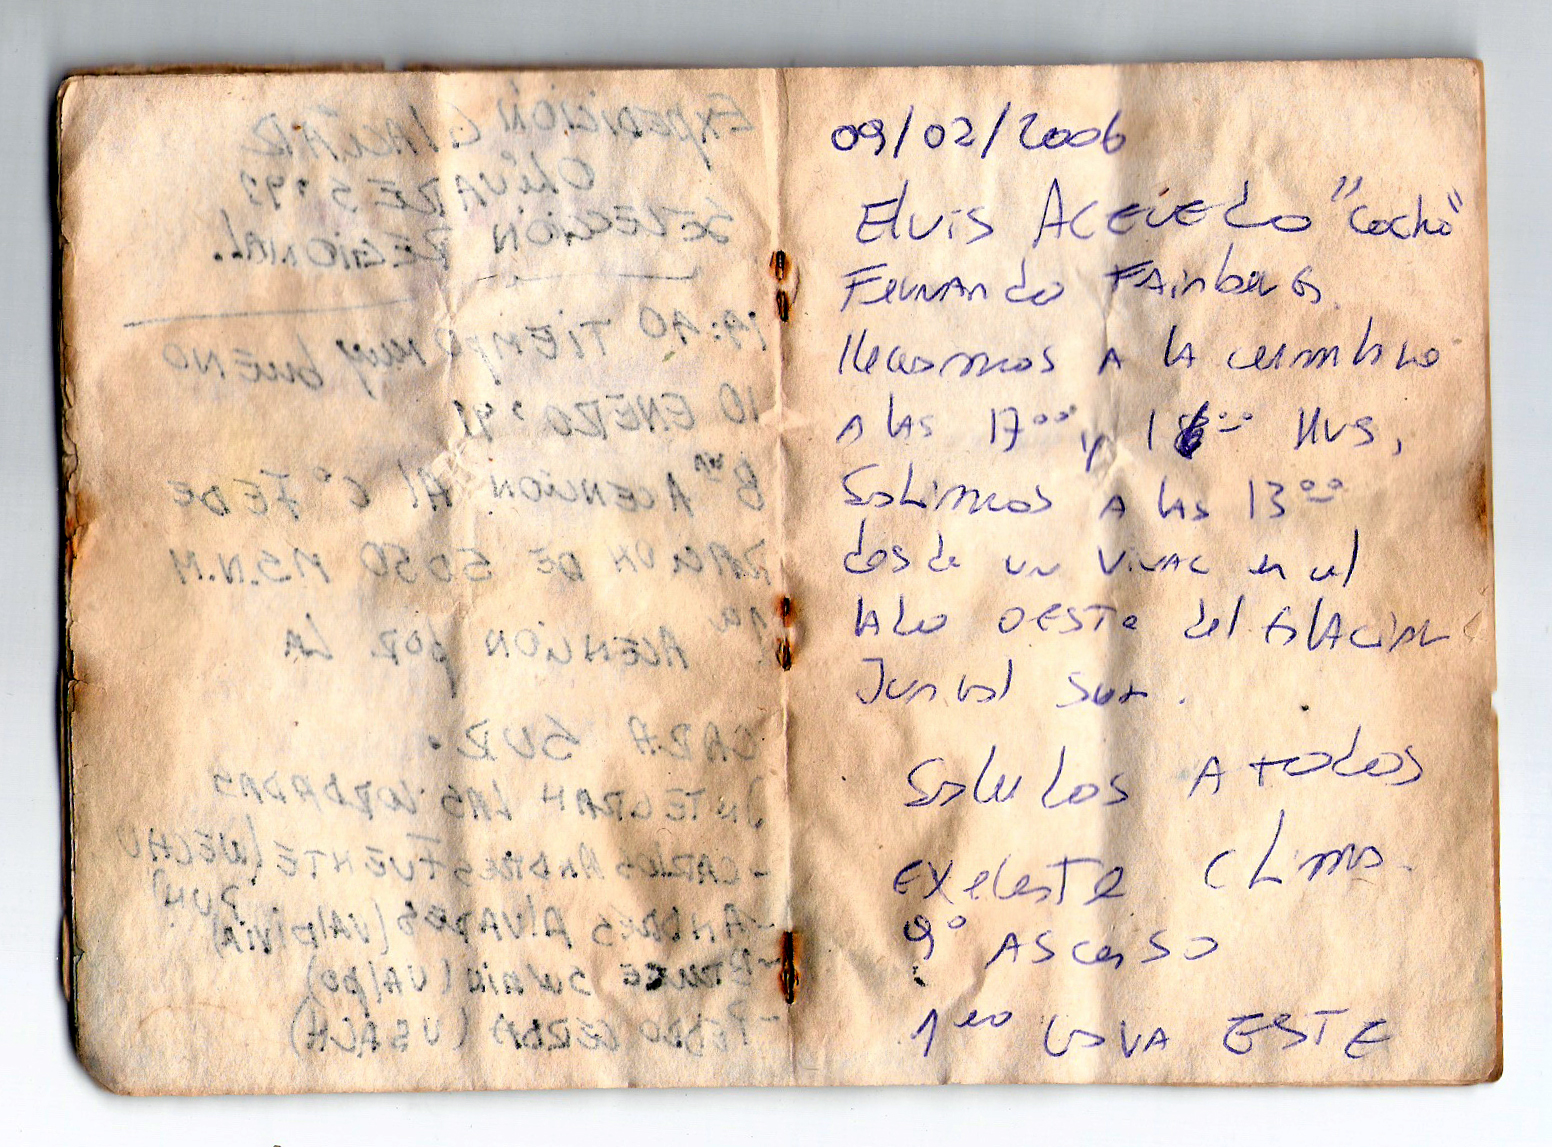 EXPEDICIÓN GLACIAR
OLIVARES '93
SELECCIÓN REGIONAL.
TIEMPO muy bUENO
10 ENERO
ACENCION Al 6° FEDE
RACION DE 5050 M.S.N.M
1ª ACENCION POR LA
CARA SUR.
INTEGRAN LAS CORDADAS
-CARLOS ANDRES FUENTE (WECHU
-ANDRES AlVARES (VAlDIVIA)
(VAlpo)
-PEDRO CERDA (USACH)
09/02/2006
Elvis ACEVEDO "Cocho"
Fernando FAinberG.
llegamos A lA cumbre
A lAS 17°° y 18°° Hrs,
Salimos A lAS 13°°
desde un Vivac en el
lADo OESTe del GlAciAR
Juncal Sur.
Saludos A todos
EXelente Clima.
9° ASCenso
1ero USVA ESTE